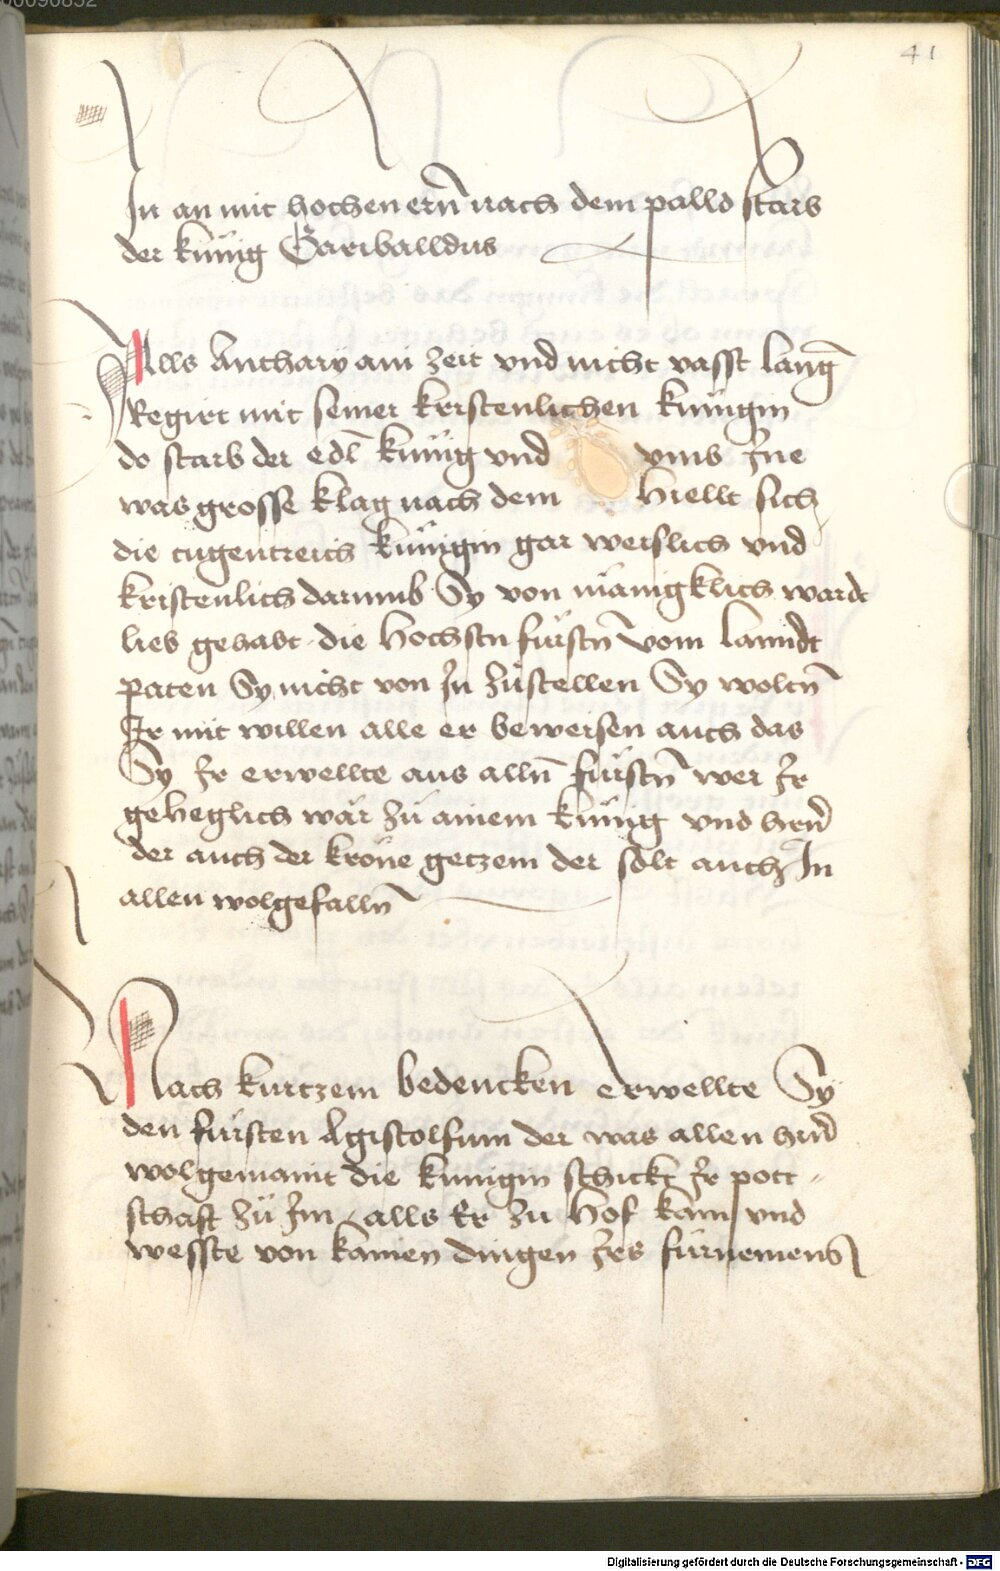 00090852
41
In an mit hochen ern̄ nach dem palld starb
der künig Gariballdus
Alls Anthary ain zeit vnd nicht vasst lang
Regirt mit seiner kristenlichen künigin
do starb der edl künig vnd vmb Jne
was grosse klag nach dem hiellt sich
die tugentreich künigin gar weislich vnd
kristenlich darumb Sy von mänigklich wardt
lieb gehabt die hochstn fürstn̄ vom lanndt
paten Sy nicht von Jn zu stellen Sy woltn̄
Jr mit willen alle er beweisen auch das
Sy Jr erwellte aus alln̄ fürstn̄ wer Jr
geheglich wär zu ainem künig vnd hern̄
der auch der krone getzem der solt auch In
allen wolgefalln̄
Nach kurtzem bedencken erwellte Sy
den fürsten Agistolfum der was allen hern̄
wolgemaint die künigin schickt Jr pott
schaft zu Jm alls Er zu hof kam vnd
wesste von kainen dingen Jres fürnemens
Digitalisierung gefördert durch die Deutsche Forschungsgemeinschaft - DFG